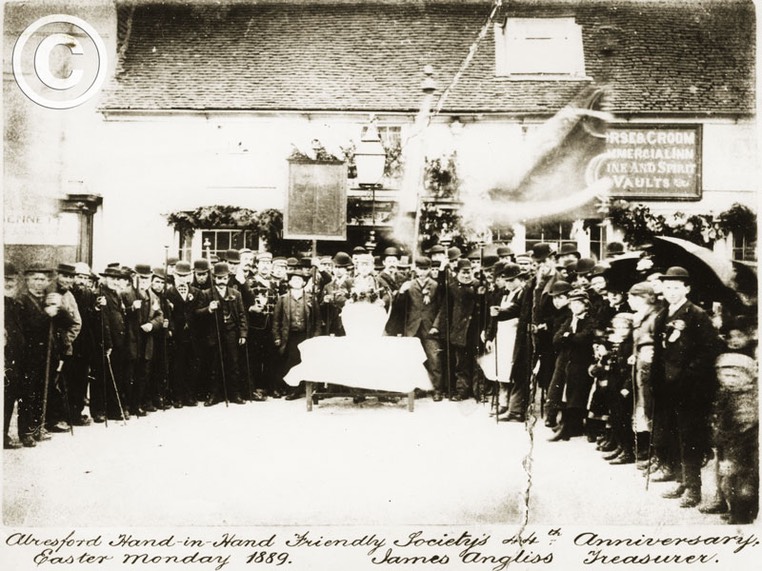 ©
HORSE & GROOM
COMMERCIAL INN
WINE AND SPIRIT
VAULTS
BENNETT
Alresford Hand-in-Hand Friendly Society's 44th Anniversary,
Easter Monday 1889. James Angliss Treasurer.